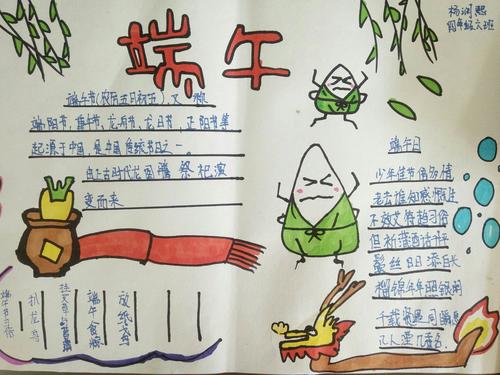 杨润熙
四年级六班
端午
端午节(农历五月初五),又称
端阳节,重午节,龙舟节,龙日节,正阳节等
起源于中国,是中国传统节日之一。
自上古时代龙图腾祭祀演
变而来
端午日
少年佳节倍多情
老去谁知感慨生
不效艾符趋习俗
但祈蒲酒话升平
鬓丝日日添白
榴锦年年照眼明
千载贤愚同瞬息
几人湮几垂名
端午节习俗
扒龙舟
挂艾草
端午食粽
放纸鸢